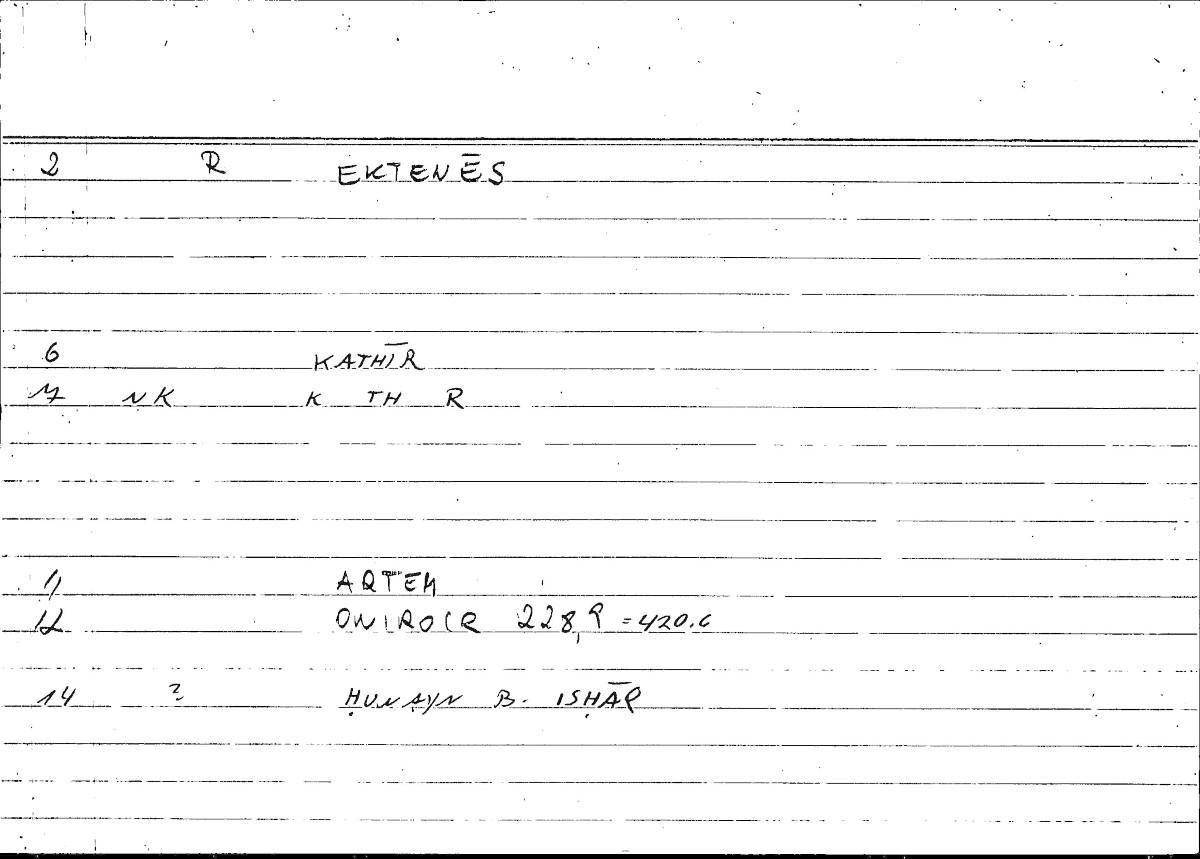 2 R EKTENĒS
6 KATHĪR
7 NK K TH R
11 ARTEM
12 ONIROCR 228,9 =420.6
14 ? ḤUNAYN B. ISḤĀQ